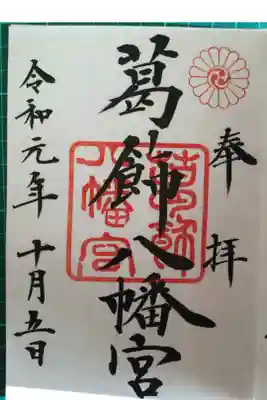 奉拝
葛飾八幡宮
葛飾
八幡宮
令和元年十月五日